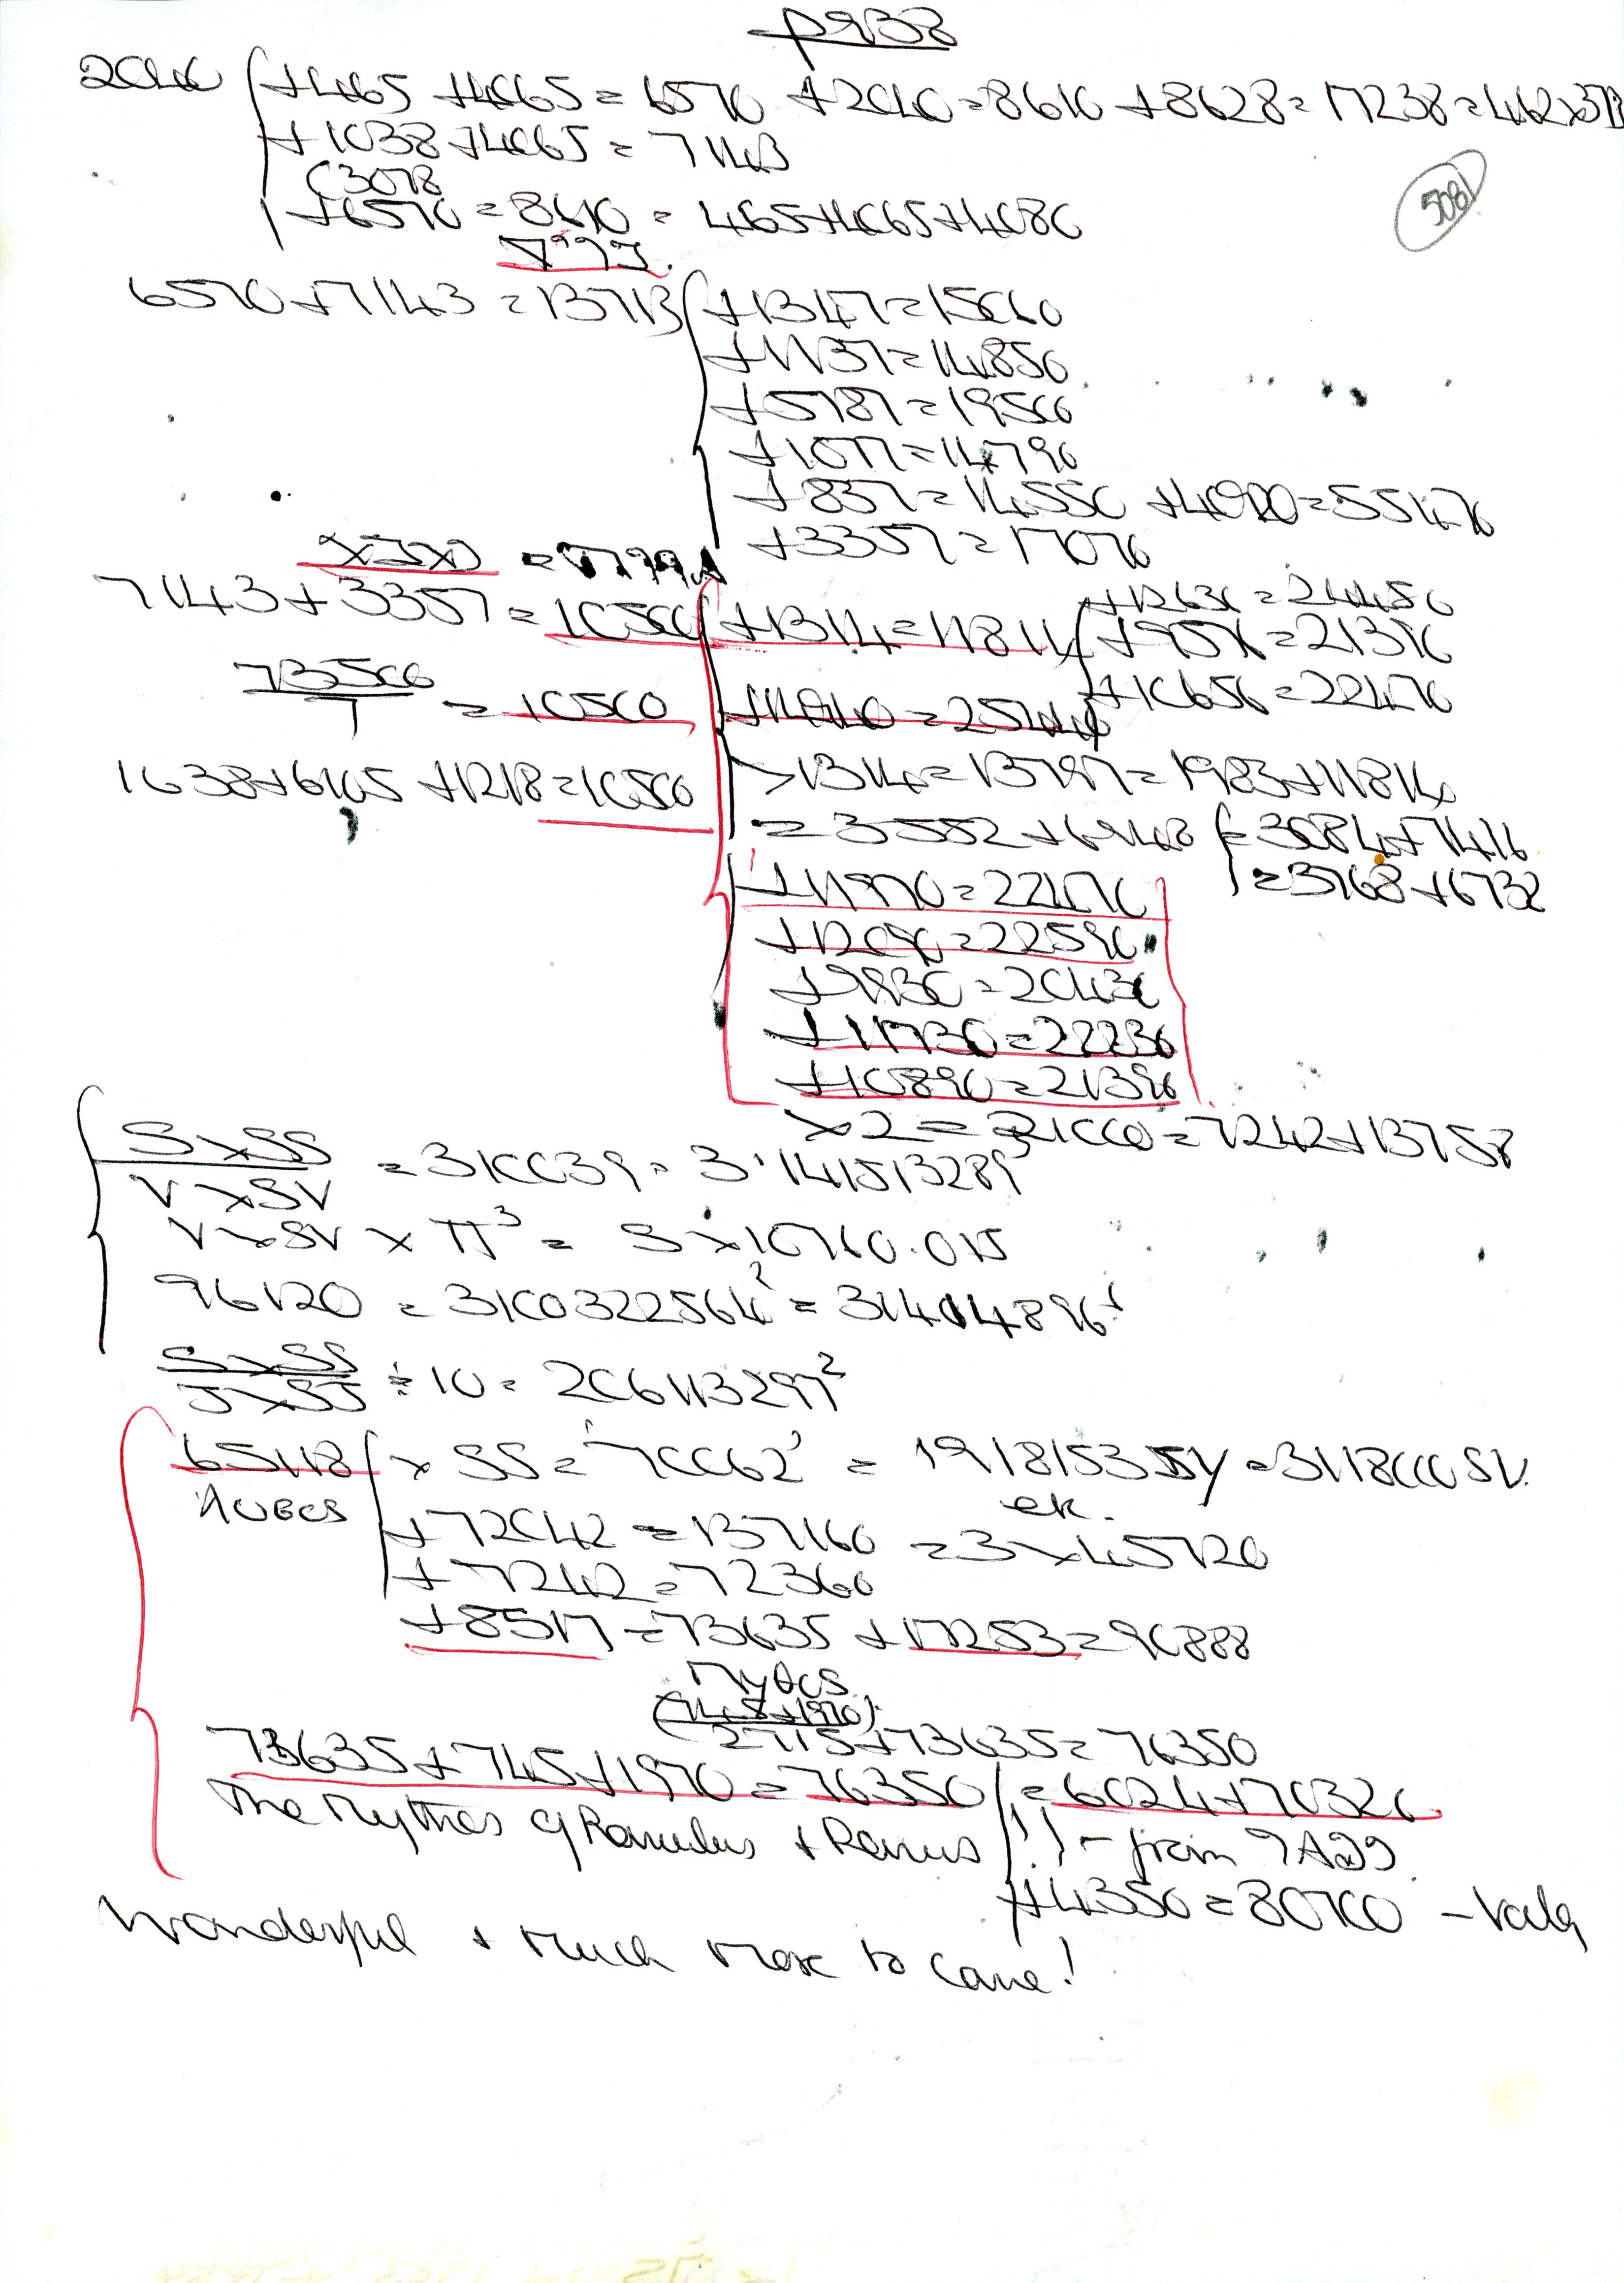 p938
2040 +465 +4065 = 6570 +2040 = 8610 + 8628 = 17238 = 462 x 373
+1038 +4065 = 7143
(3078
+6570 = 8610 = 465 +4065 +4080
5081
6570 + 7143 = 13713 +1347 = 15060
+1137 = 14850
+5787 = 19500
+1077 = 14790
+837 = 14550 +40920 = 55470
+3357 = 17070
7143 + 3357 = 10500 +1314 = 11814 +12636 = 24450
+9576 = 21390
73500 / 7 = 10500 +14940 = 25440 +10656 = 22470
1638 + 6105 + 1218 = 10500 > 1314 = 13797 = 1983 + 11814
= 3552 + 6948 = 3084 + 7416
= 3768 + 6732
+11970 = 22470
+12090 = 22590
+9930 = 20430
+11730 = 22230
+10890 = 21390
x 2 = 21000 = 7242 + 13758
S x SS / V x SV = 310039 = 3.141513289³
V x SV x π³ = S x 10760.015
96120 = 310.0322564² = 31404896¹
S x SS / J x SJ ÷ 10 = 206113297²
65118 x SS = 70062' = 19181535 SY = 3118000 SV.
+72042 = 137160 = 3 x 45720
+7242 = 72360
+8517 = 73635 + 17253 = 90888
Mythos
(745+1970)
2715 + 73635 = 76350
73635 + 745 + 1970 = 76350 = 6024 + 70326
The Mythos of Romulus + Remus !! - from
+4350 = 80700 -
Wonderful + Much More to Come!